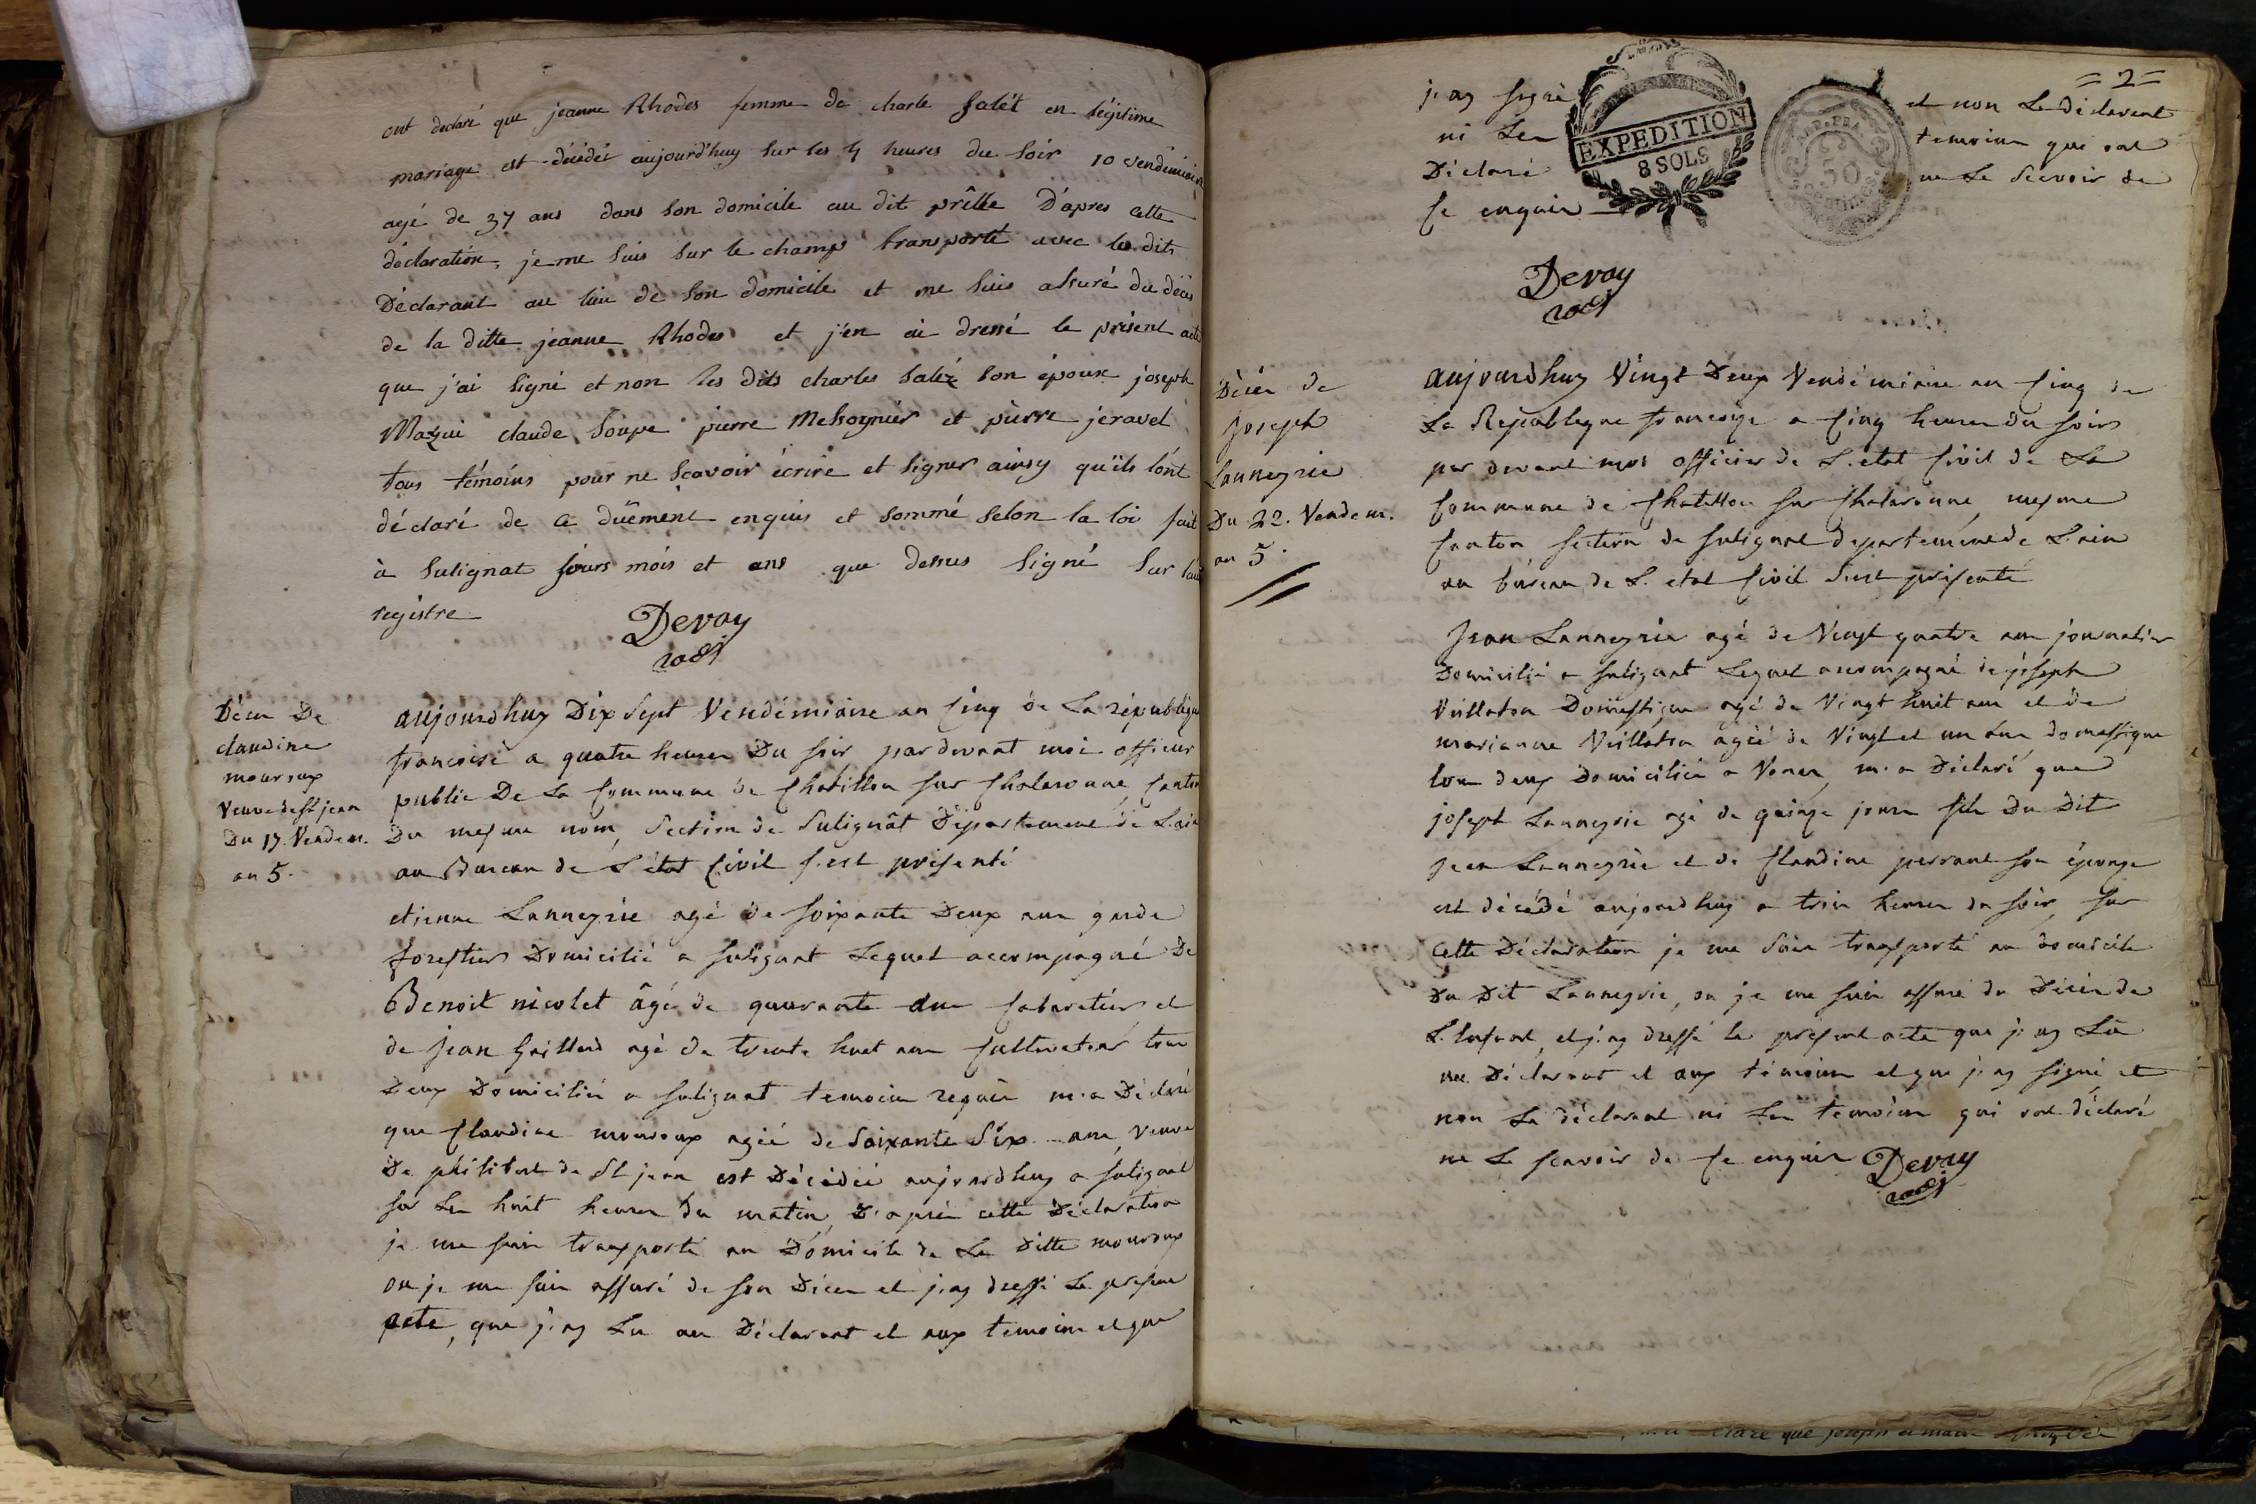 ont declaré que jeanne Rhodes femme de charle Salét en légitime
mariage est décédée aujourd'huy sur les 4 heures du Soir 10 vendémiaire
agé de 37 ans dans son domicile au dit prêlle D'apres cette
déclaration, je me suis sur le champs transporté avec les dits
Déclarant au lieu de son domicile et me suis assuré du décès
de la ditte jeanne Rhodes et j'en ai dressé le présent acte
que j'ai signé et non les dits charles Saléz son époux joseph
Mazui claude Soupe pierre Messognier et pierre jeravel
tous témoins pour ne Scavoir écrire et signer ainsy qu'ils l'ont
déclaré de ce duëment enquis et sommé selon la loi fait
à Sulignat jours mois et ans que dessus Signé Sur
registre
Devoy
Décès De
claudine
mouroux
Veuve de St jean
Du 17. Vendem.
an 5.
aujourdhuy Dix Sept Vendémiaire an Cinq de La république
françoise a quatre heures Du soir pardevant moi officier
public De La Commune de Chatillon sur Chalaronne, Canton
Du mesme nom, Section de Sulignât Département de L'ain
au Bureau de L'état Civil s'est présenté
etienne Lanneyrie agé de soixante Deux ans garde
forestier Domicilié a sulignat Lequel accompagné De
Benoit nicolet âgé de quarante ans Cabaretier et
de jean Gaillard agé de trente huit ans Cultivateur tous
Deux Domiciliés a sulignat temoins requis m'a Déclaré
que Claudine mouroux agée de Soixante Six ans, veuve
De philibert de St jean est Décédée aujourdhuy a sulignat
sur Les huit heures du matin, D'après cette Déclaration
je me suis transporté au Domicile de La Ditte mouroux
ou je me suis assuré de son Décès et j'ay dressé Le présent
acte, que j'ay Lu au Déclarant et aux temoins et que
= 2 =
j'ay signé et non Le Déclarant
ni Les temoins qui ont
Déclaré ne Le Scavoir de
Ce enquis
EXPEDITION
8 SOLS
REP. FRA.
50
Centimes
Devoy
Décès de
Joseph
Lanneyrie
Du 22. Vendem.
an 5.
aujourdhuy Vingt Deux Vendémiaire an Cinq de
La Republique françoise a Cinq heures du soir
par devant moi officier de L'état Civil de La
Commune de Chatillon sur Chalaronne, mesme
Canton, Section de sulignat departement de L'ain
au bureau de L'etat Civil s'est présenté
Jean Lanneyrie agé de Vingt quatre ans journalier
Domicilié a sulignat Lequel accompagné de joseph
Vuillaton Domestique agé de Vingt huit ans et de
marianne Vuillaton agée de Vingt et un ans domestique
tous deux Domiciliés a Vonas, m'a Déclaré que
joseph Lanneyrie agé de quinze jours fils Du Dit
jean Lanneyrie et de Claudine perraud son épouze
est décédé aujourdhuy a trois heures du soir, sur
cette Déclaration je me Suis transporté au domicile
Du Dit Lanneyrie, ou je me suis assuré du Décès de
L'enfant, et j'ay dressé le présent acte que j'ay Lu
au Déclarant et aux témoins et que j'ay signé et
non Le déclarant ni Les temoins qui ont déclaré
ne Le scavoir de Ce enquis Devoy